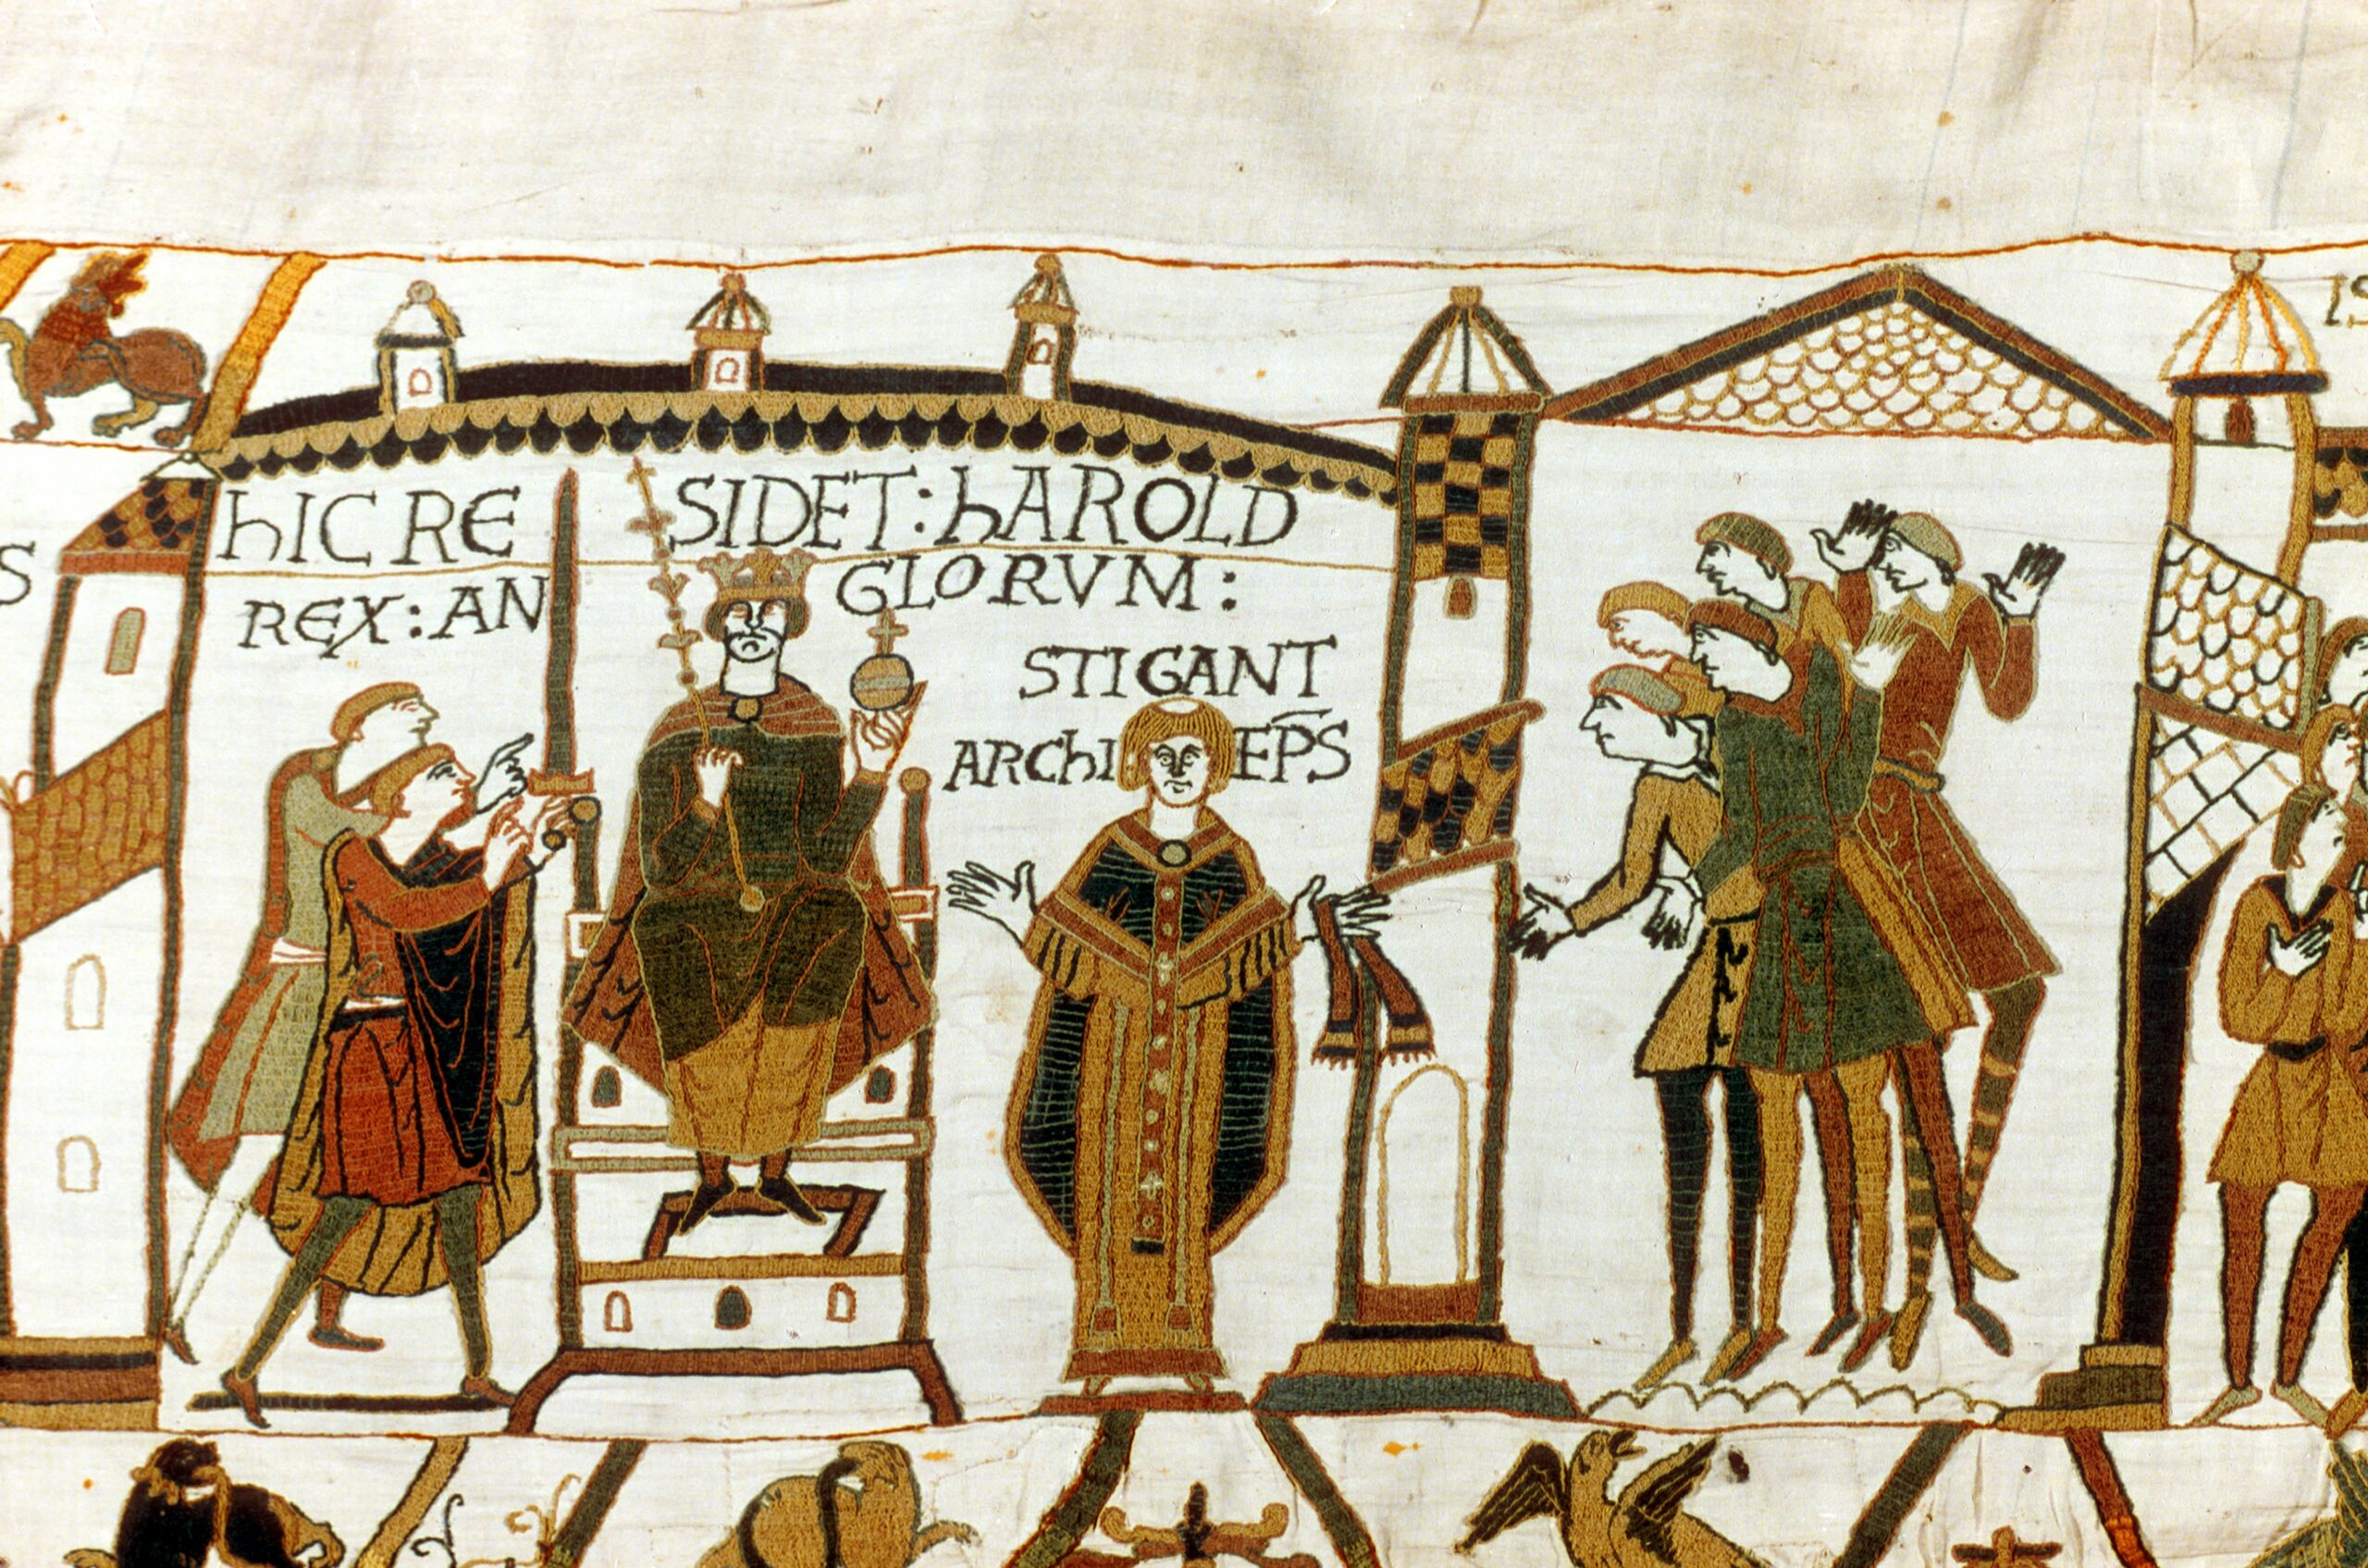 S
hIC RE SIDET : hAROLD
REX : AN GLORVM :
STIGANT
ARChI EP̄S
IS